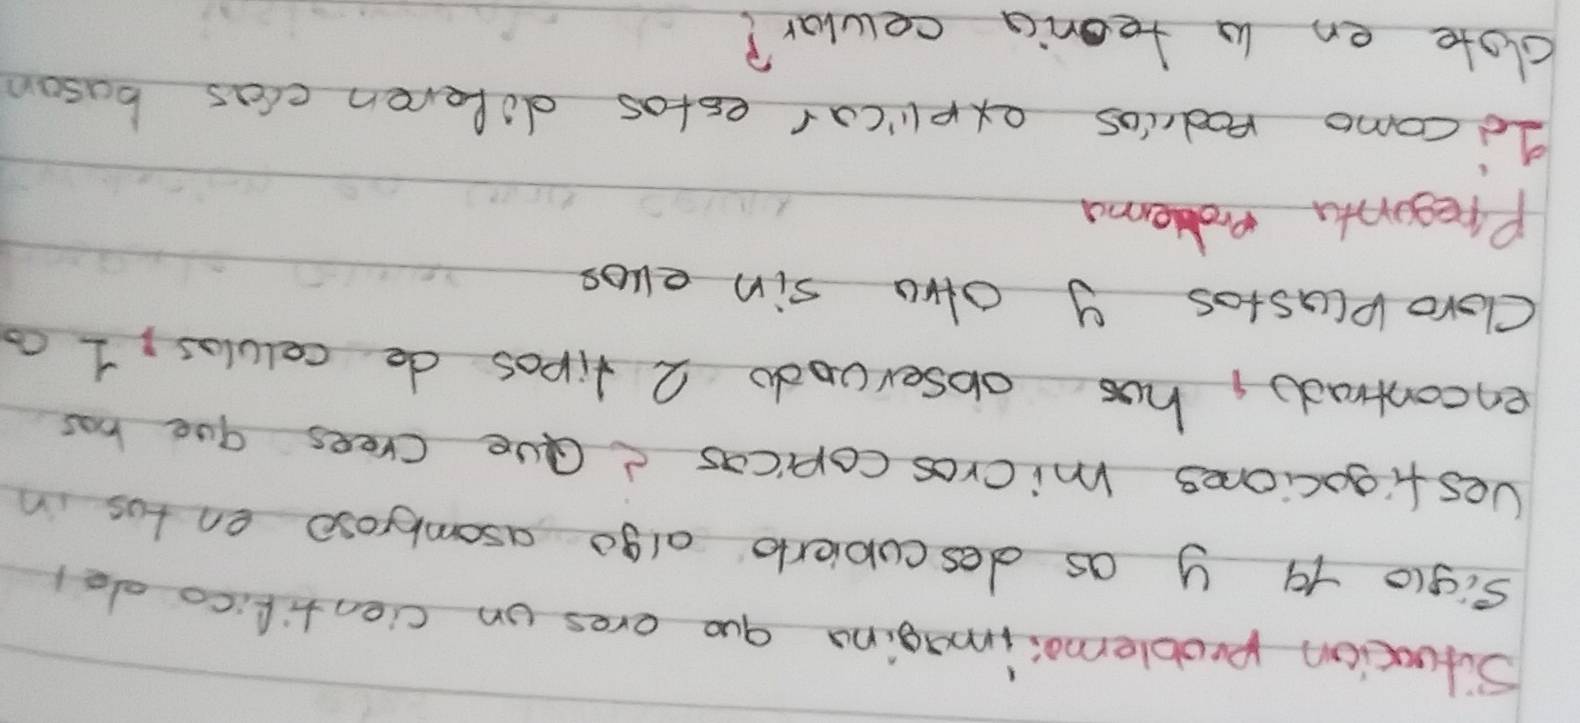 Situacion problema: imagina que eres un cientifico del
siglo 19 y as descubierto algo asombroso en tus in
vestigaciones micros copicas ¿ Que crees que has
encontrado, has observado 2 tipos de celulas, 1 co
Cloro plastos y otra sin ellos
Pregunta problema
1¿ como podrias explicar estos diferen cias basan
dote en la teoria celular?